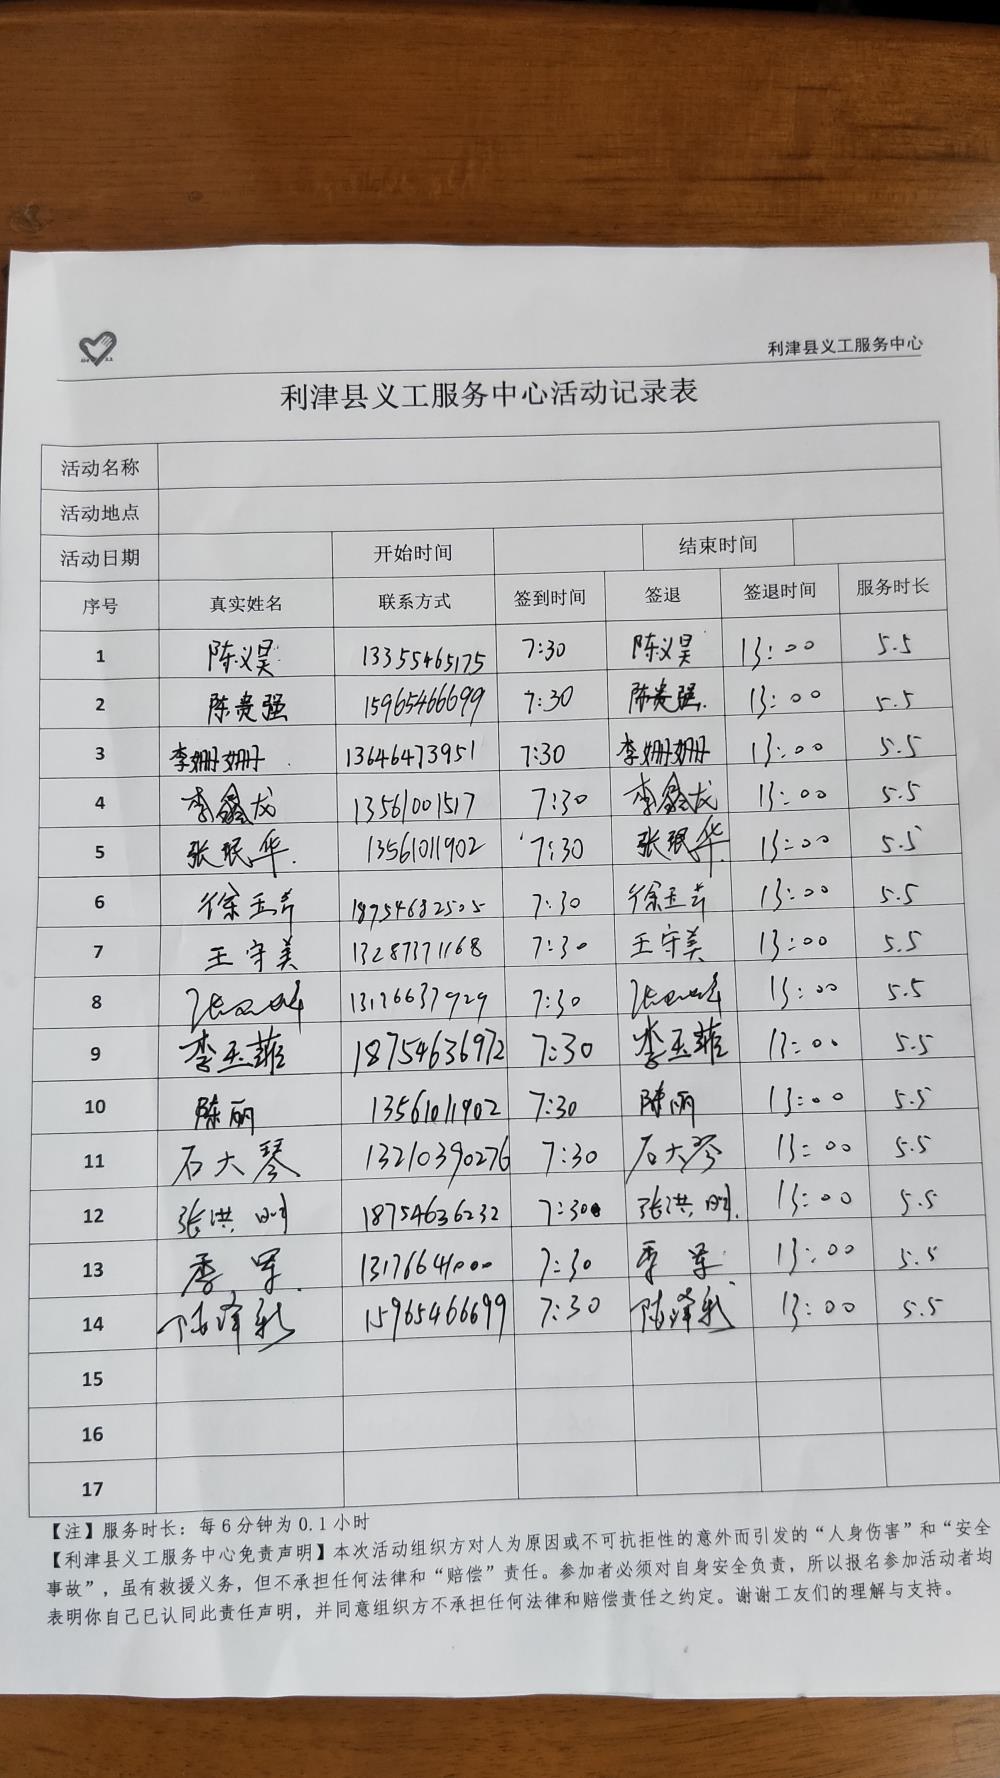 利津县义工服务中心
利津县义工服务中心活动记录表
活动名称
活动地点
活动日期 开始时间 结束时间
序号 真实姓名 联系方式 签到时间 签退 签退时间 服务时长
1 陈义昊 13355465175 7:30 陈义昊 13:00 5.5
2 陈贵强 15965466699 7:30 陈贵强 13:00 5.5
3 李姗姗 13646473951 7:30 李姗姗 13:00 5.5
4 李鑫龙 13561001517 7:30 李鑫龙 13:00 5.5
5 张珉华 13561011902 7:30 张珉华 13:00 5.5
6 徐玉芹 18954682505 7:30 徐玉芹 13:00 5.5
7 王守美 13287371168 7:30 王守美 13:00 5.5
8 13176637929 7:30 13:00 5.5
9 李玉菲 18754636972 7:30 李玉菲 13:00 5.5
10 陈丽 13561011902 7:30 陈丽 13:00 5.5
11 石大琴 13210390276 7:30 石大琴 13:00 5.5
12 张洪明 18754636232 7:30 张洪明 13:00 5.5
13 季军 13176641000 7:30 季军 13:00 5.5
14 陈泽彩 15965466699 7:30 陈泽彩 13:00 5.5
15
16
17
【注】服务时长：每6分钟为0.1小时
【利津县义工服务中心免责声明】本次活动组织方对人为原因或不可抗拒性的意外而引发的“人身伤害”和“安全
事故”，虽有救援义务，但不承担任何法律和“赔偿”责任。参加者必须对自身安全负责，所以报名参加活动者均
表明你自己已认同此责任声明，并同意组织方不承担任何法律和赔偿责任之约定。谢谢工友们的理解与支持。